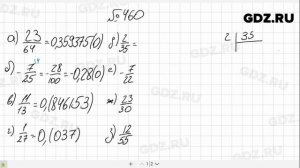 GDZ.RU
№460
а) 23/64 = 0,359375(0) д) 2/35 =
2 | 35
б) - 7/25 = - 28/100 = -0,28(0) е) - 7/22
в) 11/13 = 0,(846153) ж) 23/30
г) 1/27 = 0,(037) з) 12/55
GDZ.RU